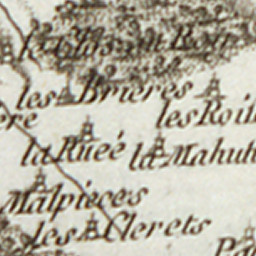 les Brieres
les Roi
ere
la Rueé
la Mahut
Malpieces
les Clerets